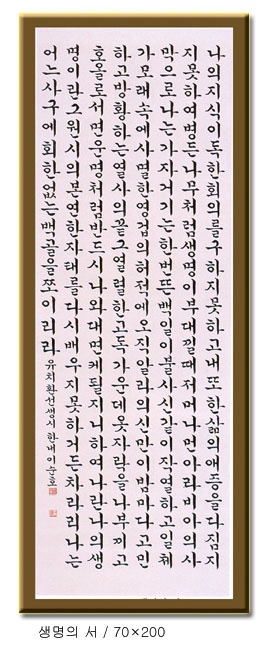 나의지식이독한회의를구하지못하고내또한삶의애증을다짐지
지못하여병든나무처럼생명이부대낄때저머나먼아라비아의사
막으로나는가자거기는한번뜬백일이불사신같이작열하고일체
가모래속에사멸한영겁의허적에오직알라의신만이밤마다고민
하고방황하는열사의끝그열렬한고독가운데옷자락을나부끼고
호올로서면운명처럼반드시나와대면케될지니하여나란나의생
명이란그원시의본연한자태를다시배우지못하거든차라리나는
어느사구에회한없는백골을쪼이리라 유치환선생시 한내이순호
생명의 서 / 70×200